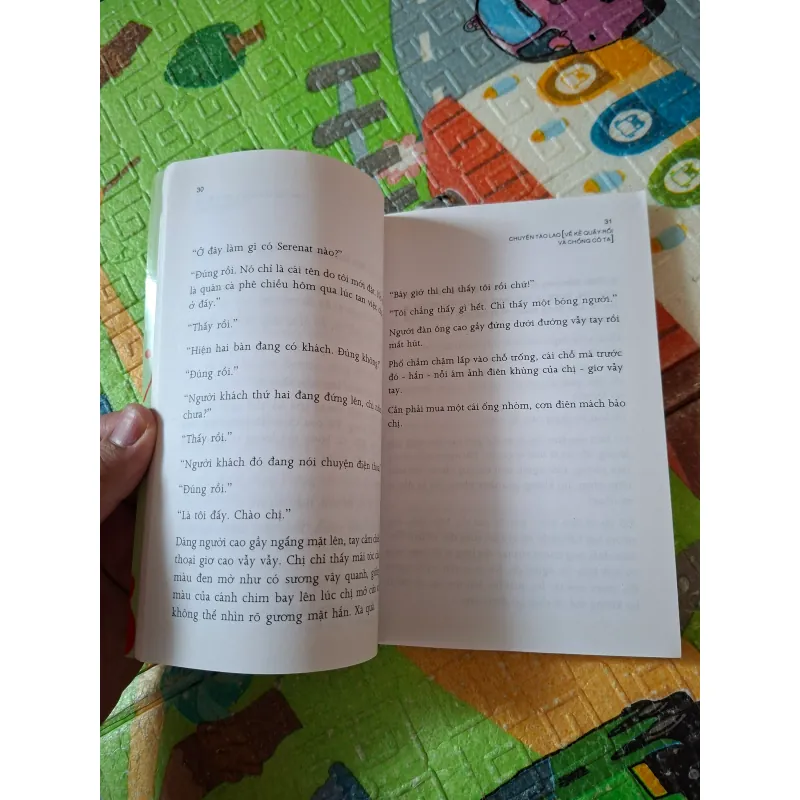 30
“Ở đây làm gì có Serenat nào?”
“Đúng rồi. Nó chỉ là cái tên do tôi mới đặt.
là quán cà phê chiều hôm qua lúc tan việc
ở đây.”
“Thấy rồi.”
“Hiện hai bàn đang có khách. Đúng không?”
“Đúng rồi.”
“Người khách thứ hai đang đứng lên, chị
chưa?”
“Thấy rồi.”
“Người khách đó đang nói chuyện điện
“Đúng rồi.”
“Là tôi đấy. Chào chị.”
Dáng người cao gầy ngẩng mặt lên, tay cầm
thoại giơ cao vẫy vẫy. Chị chỉ thấy mái tóc
màu đen mờ như có sương vây quanh,
màu của cánh chim bay lên lúc chị mở cửa
không thể nhìn rõ gương mặt hắn. Xa quá
31
CHUYỆN TÀO LAO [VỀ KẺ QUẤY RỐI
VÀ CHỒNG CÔ TA]
“Bây giờ thì chị thấy tôi rồi chứ!”
“Tôi chẳng thấy gì hết. Chỉ thấy một bóng người.”
Người đàn ông cao gầy đứng dưới đường vẫy tay rồi
mất hút.
Phố chầm chậm lấp vào chỗ trống, cái chỗ mà trước
đó - hắn - nỗi ám ảnh điên khùng của chị - giơ vẫy
tay.
Cần phải mua một cái ống nhòm, cơn điên mách bảo
chị.